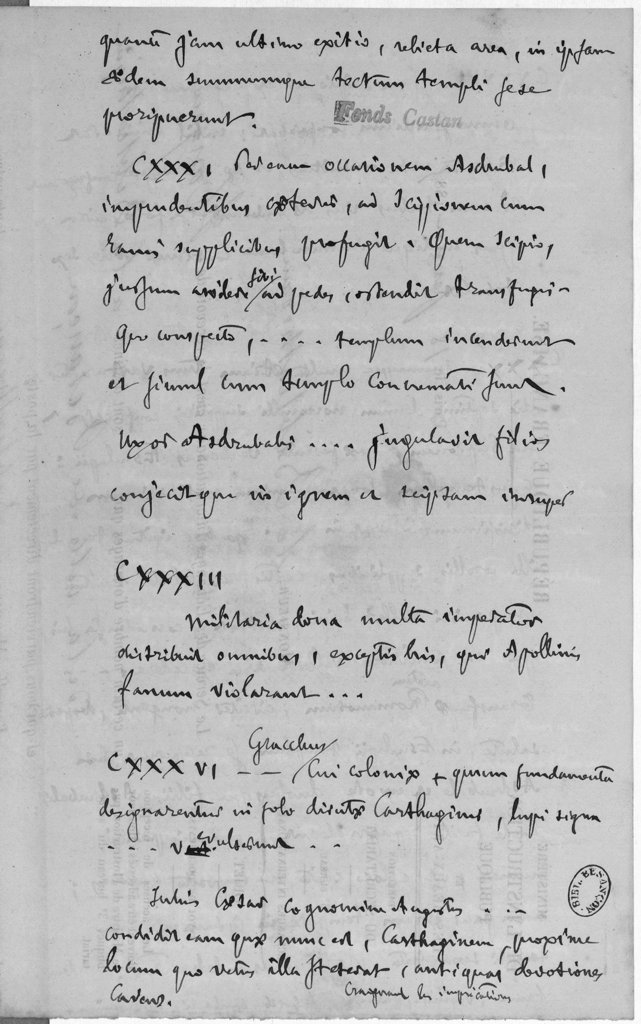 quam jam ultimo exitio, relicta area, in ipsam
ædem summumque tectum templi sese
proripuerunt.
Fonds Castan
CXXXI occasionem Asdrubal,
imprudentibus ceteris, ad Scipionem cum
ramis supplicibus profugit. Quem Scipio,
jussum assidere sibi ad pedes, ostendit transfugis.
Quo conspecto, . . . . templum incenderunt
et simul cum templo concremati sunt.
Uxor Asdrubalis .... jugulavit filios
conjecitque in ignem et seipsam insuper
CXXXIII
Militaria dona multa imperator
distribuit omnibus, exceptis his, qui Apollinis
fanum violarant ...
Gracchus
CXXXVI — — Cui coloniæ + quum fundamenta
designarentur in solo dirutæ Carthaginis, lupi signa
- - - . evulserunt . .
Julius Cæsar cognomine Augustus . . .
condidit eam quæ nunc est, Carthaginem, proxime
locum quo vetus illa steterat, antiquas devotiones
cavens.
Craignant les imprécations
BIBL. BESANÇON